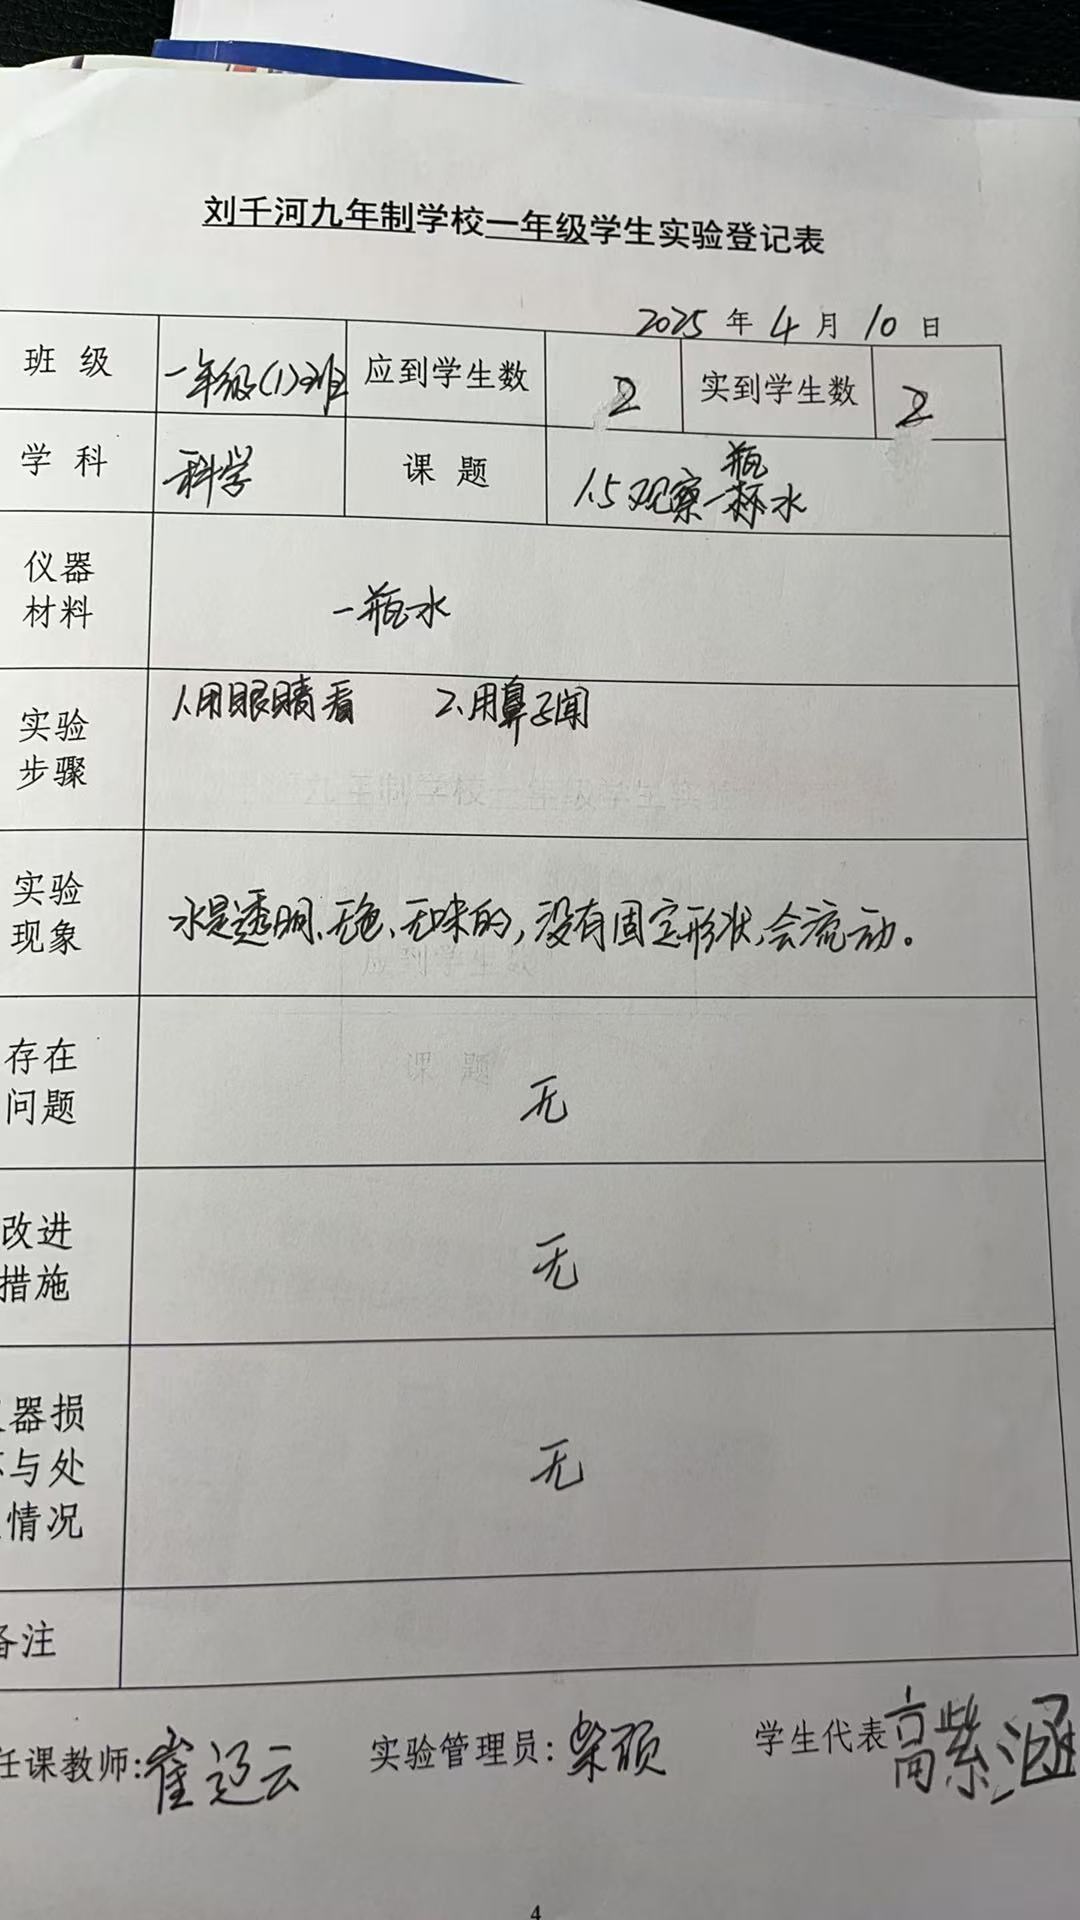 刘千河九年制学校一年级学生实验登记表
2025年4月10日
班级 一年级(1)班 应到学生数 2 实到学生数 2
学科 科学 课题 1.5观察一杯水
瓶
仪器
材料
一瓶水
实验
步骤
1.用眼睛看 2.用鼻子闻
实验
现象
水是透明、无色、无味的，没有固定形状，会流动。
存在
问题
无
改进
措施
无
器损
与处
情况
无
备注
任课教师:崔 云
实验管理员:柴硕
学生代表 高紫涵
4